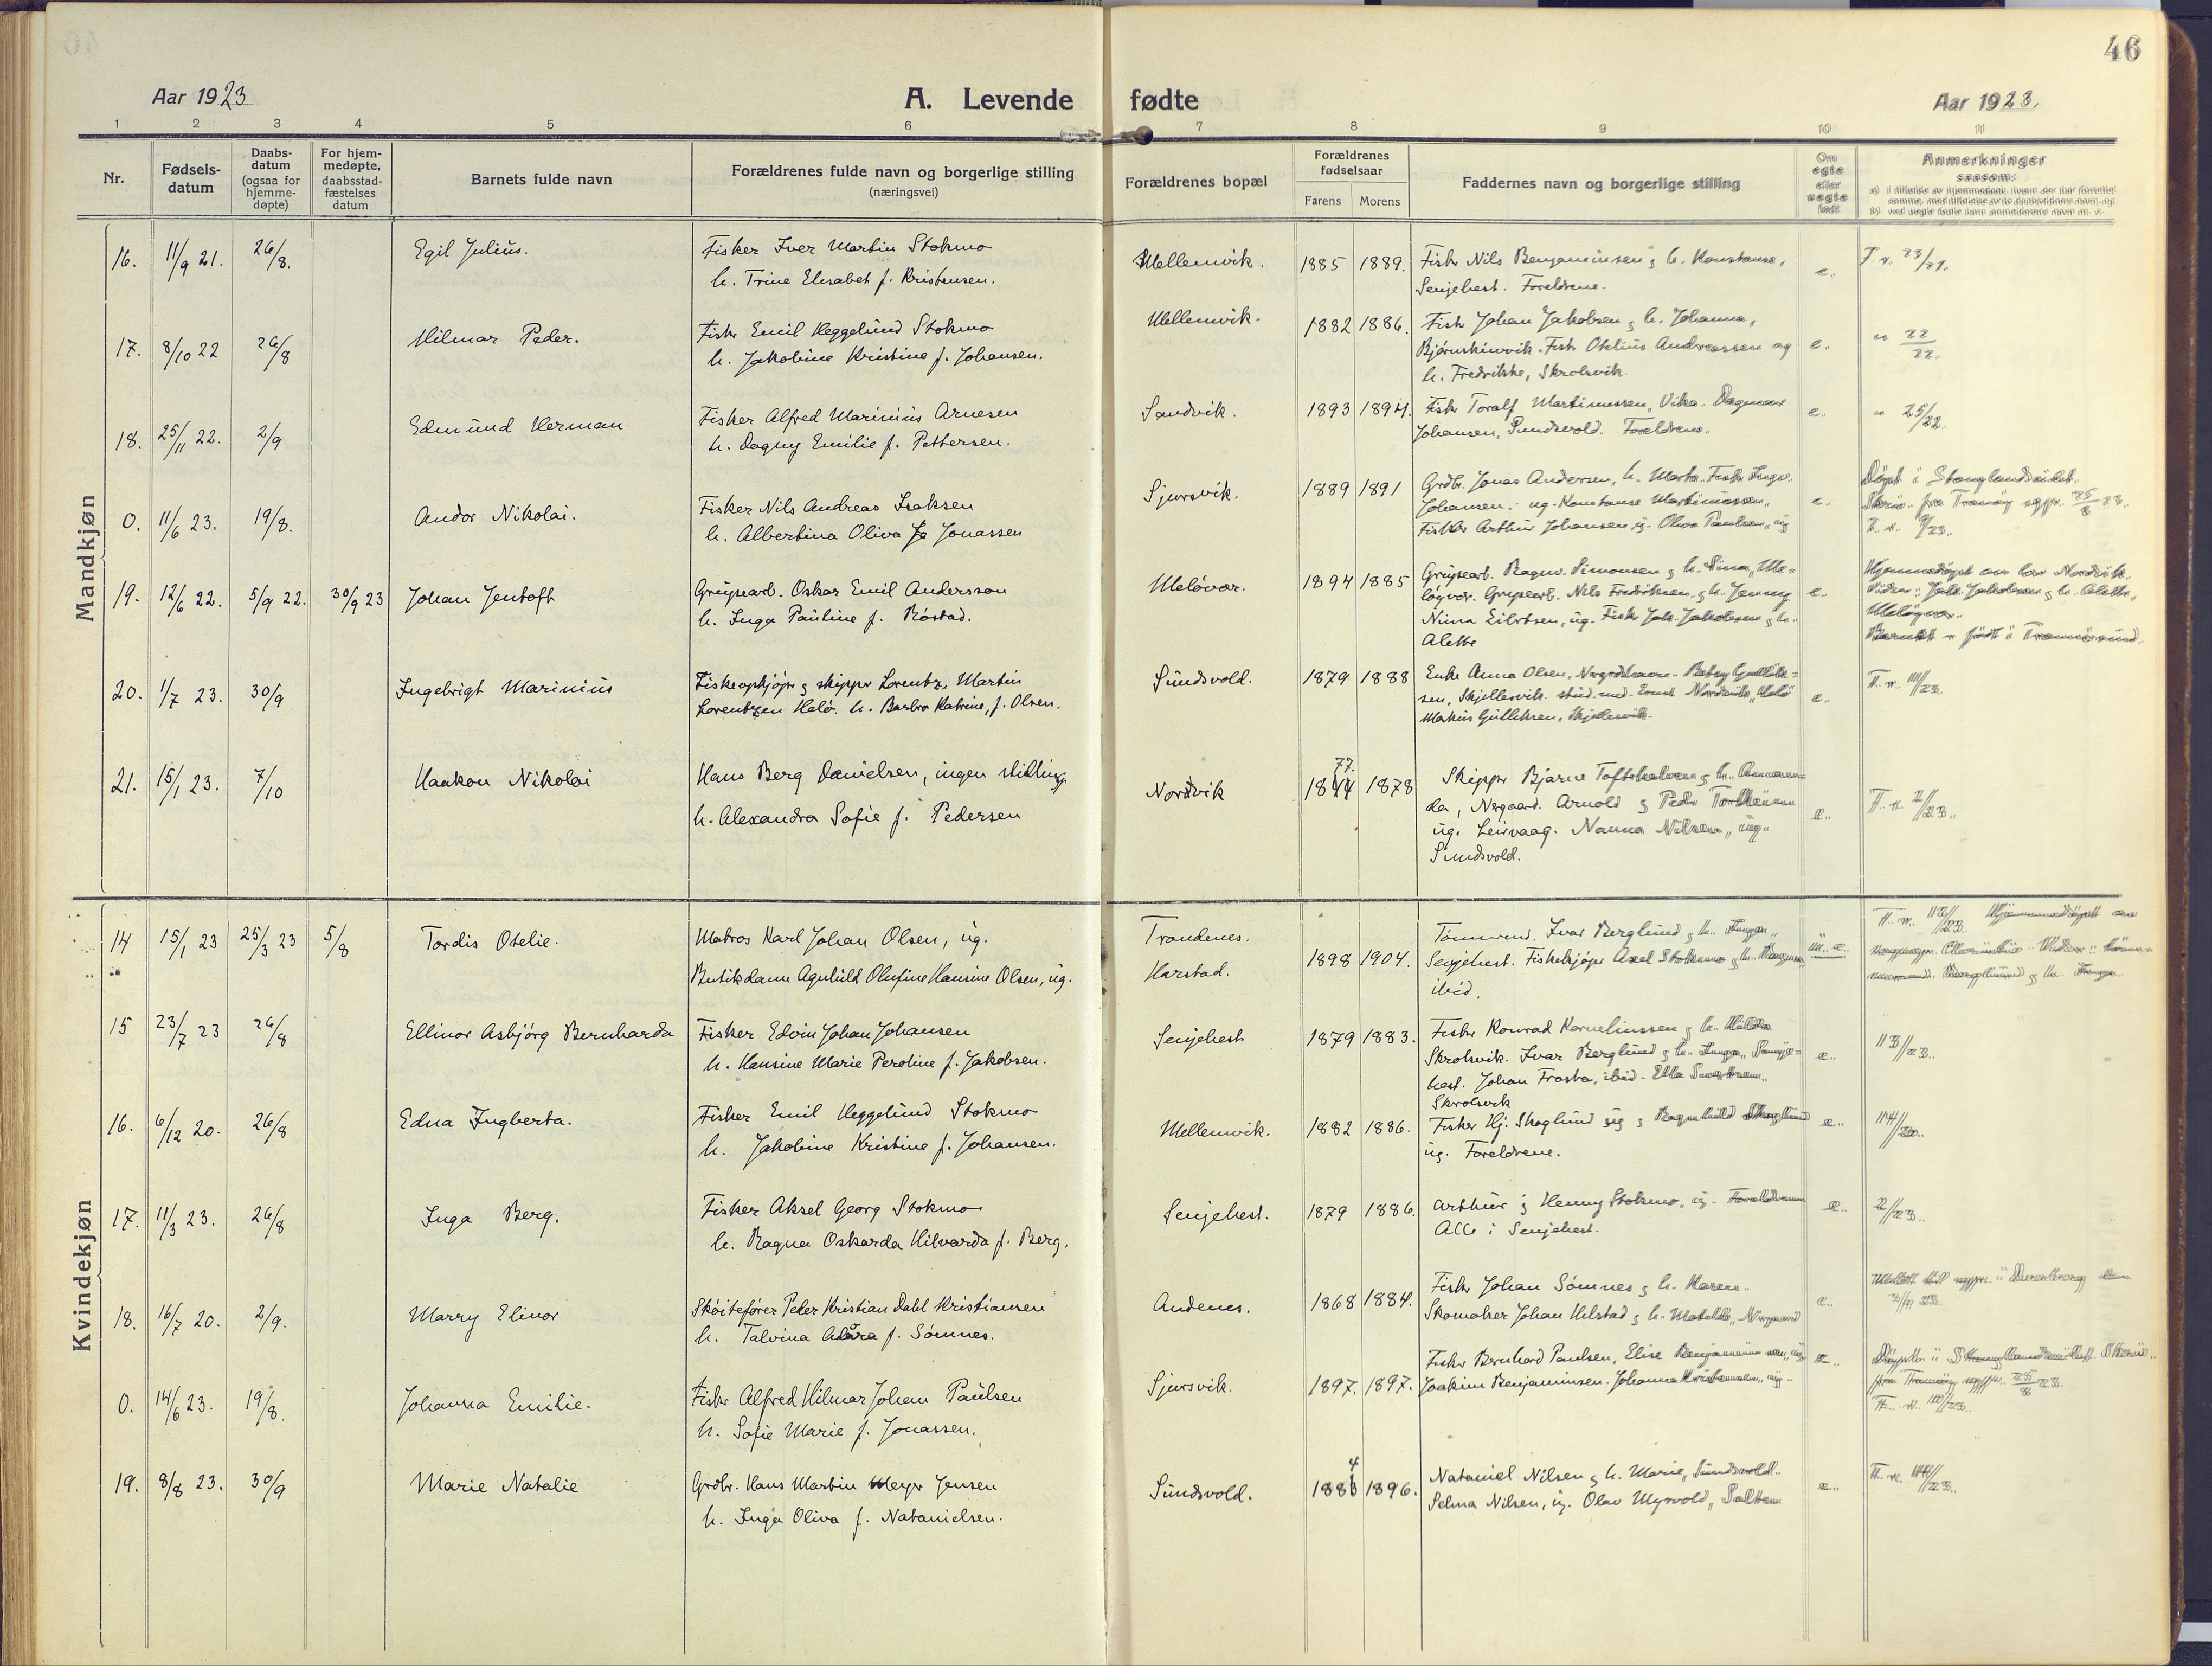 46
Aar 1923
A. Levende fødte
Aar 1923.
1 2 3 4 5 6 7 8 9 10 11
Nr.
Fødsels-
datum
Daabs-
datum
(ogsaa for
hjemme-
døpte)
For hjem-
medøpte,
daabsstad-
fæstelses
datum
Barnets fulde navn
Forældrenes fulde navn og borgerlige stilling
(næringsvei)
Forældrenes bopæl
Forældrenes
fødselsaar
Farens Morens
Faddernes navn og borgerlige stilling
Om
egte
eller
uegte
født
Anmerkninger
saasom:
a) i tilfælde av hjemmedaab, hvem der har forrettet
samme, med tilføielse av to daabsvidners navn, og
b) ved uegte fødte barn anmelderens navn m. v.
Mandkjøn
16. 11/9 21. 26/8. Egil Julius. Fisker Iver Martin Stokmo
h. Trine Elisabet f. Kristensen.
Mellemvik. 1885 1889. Fisker Nils Benjaminsen & h. Konstanse,
Senjehest. Foreldrene.
e.
17. 8/10 22 26/8 Hilmar Peder. Fisker Emil Heggelund Stokmo
h. Jakobine Kristine f. Johansen.
Mellemvik. 1882 1886. Fisker Johan Jakobsen & h. Johanna,
Bjørnskinvik. Fisk. Otelius Andreassen og
h. Fredrikke, Skrolsvik
e. " 22/22.
18. 25/11 22. 2/9 Edmund Herman Fisker Alfred Marinius Arnesen
h. Dagny Emilie f. Pettersen.
Sandvik. 1893 1894. Fisker Toralf Martinussen, Vika. Dagmar
Johansen, Sundsvold. Foreldrene.
e. " 25/22.
0. 11/6 23. 19/8. Andor Nikolai. Fisker Nils Andreas Isaksen
h. Albertina Oliva f. Jonassen
Sjursvik. 1889 1891 Grdbr. Jonas Andersen, h. Marta. Fisker Ingv.
Johansen. ug. Konstanse Martinussen,
Fisker Arthur Johansen, ug. Oliva Paulsen, ug
e. Døpt i Stonglandseidet.
Skriv. fra Tranøy sgpr. 25/8 23.
19. 12/6 22. 5/9 22. 30/9 23 Johan Jentoft Grupearb. Oskar Emil Andersson
h. Inga Pauline f. Røstad.
Meløvær. 1894 1885 Grupearb. Ragnv. Simonsen & h. Sina, Me-
løyvær. Grupearb. Nils Fredriksen & h. Jenny
Nima Eilertsen, ug. Fisker Joh. Jakobsen & h.
Alette
e. Hjemmedøpt av lær. Nordvik.
Vidner: Joh. Jakobsen & h. Alette,
Meløyvær.
Barnet er født i Tranøsund.
20. 1/7 23. 30/9 Ingebrigt Marinius Fiskeopkjøper & skipper Lorentz Martin
Lorentzen Helø. h. Barbro Katrine, f. Olsen.
Sundsvold. 1879 1888 Enke Anna Olsen, Betsy Gullik-
sen, Skjellesvik. stud. med. Ernst Nordvik,
Markus Gulliksen, Skjellesvik.
e.
21. 15/1 23. 7/10 Haakon Nikolai Hans Berg Danielsen, ingen stilling
h. Alexandra Sofie f. Pedersen
Nordvik 77. 1844 1878 Skipper Bjarne Toftehalvsen & h. Amanda,
Nergaard. Arnold & Peder
ug. Leirvaag. Nanna Nilsen, ug.
Sundsvold.
e.
Kvindekjøn
14 15/1 23 25/3 23 5/8 Tordis Otelie. Matros Karl Johan Olsen, ug.
Butikdame Agnhild Olufine Hansine Olsen, ug.
Trondenes.
Harstad.
1898 1904. Tømmerm. Ivar Berglund & h. Inga,
Senjehest. Fiskekjøper Axel Stokmo & h. Ragna,
ibid.
u. e.
15 23/7 23 26/8 Ellinor Asbjørg Bernharda Fisker Edvin Johan Johansen
h. Hansine Marie Peroline f. Jakobsen.
Senjehest 1879 1883. Fisker Konrad Korneliussen & h. Hilda
Skrolsvik. Ivar Berglund & h. Inga, Senje-
hest. Johan Frosta, ibid. Ella
Skrolsvik
e. 13/23.
16. 6/12 20. 26/8 Edna Ingberta. Fisker Emil Heggelund Stokmo
h. Jakobine Kristine f. Johansen.
Mellemvik. 1882 1886. Fisker Hj. Skoglund ug & Ragnhild Skoglund
ug. Foreldrene.
e. 14/20.
17. 11/3 23. 26/8 Inga Berg. Fisker Aksel Georg Stokmo
h. Ragna Oskarda Hilvarda f. Berg.
Senjehest. 1879 1886. Arthur & Henny Stokmo, ug. Foreldrene
Alle i Senjehest.
e. 2/23.
18. 16/7 20. 2/9. Marry Elinor Skøitefører Peder Kristian Dahl Kristiansen
h. Talvina Alvara f. Sømnes.
Andenes. 1868 1884. Fisker Johan Sømnes & h. Maren.
Skomaker Johan Hilstad & h. Matilde, Nergaard
e.
0. 14/6 23. 19/8. Johanna Emilie. Fisker Alfred Hilmar Johan Paulsen
h. Sofie Marie f. Jonassen.
Sjursvik. 1897. 1897. Fisker Bernhard Paulsen, Elise Benjaminsen, ug
Joakim Benjaminsen. Johanna Kristensen, ug.
e. Døpt i Stonglandseidet. Skriv.
fra Tranøy sgpr. 25/8 23.
19. 8/8 23. 30/9 Marie Natalie Grdbr. Hans Martin Meyer Jensen
h. Inga Oliva f. Natanielsen.
Sundsvold. 4 1886 1896. Nataniel Nilsen & h. Marie, Sundsvold.
Selma Nilsen, ug. Olav Myrvold,
e.